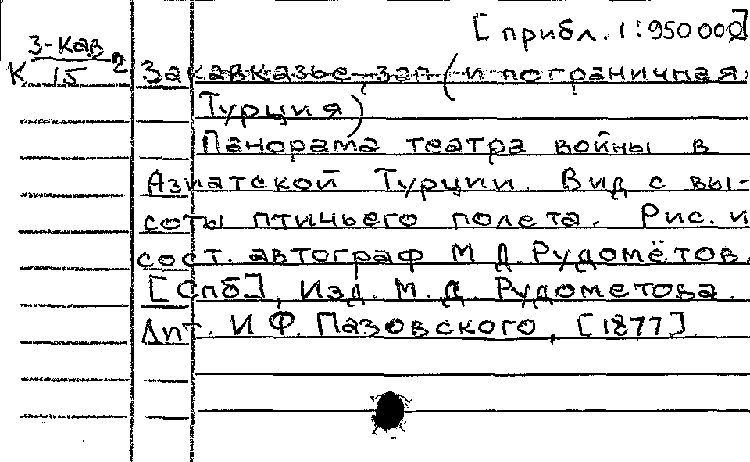 [прибл. 1:950000]
З-Кав
К 15 2
Закавказье, зап. (и пограничная
Турция)
Панорама театра войны в
Азиатской Турции. Вид с вы-
соты птичьего полета. Рис. и
сост. автограф М. Д. Рудомётов.
[Спб], Изд. М. Д. Рудометова.
Лит. И. Ф. Пазовского, [1877].